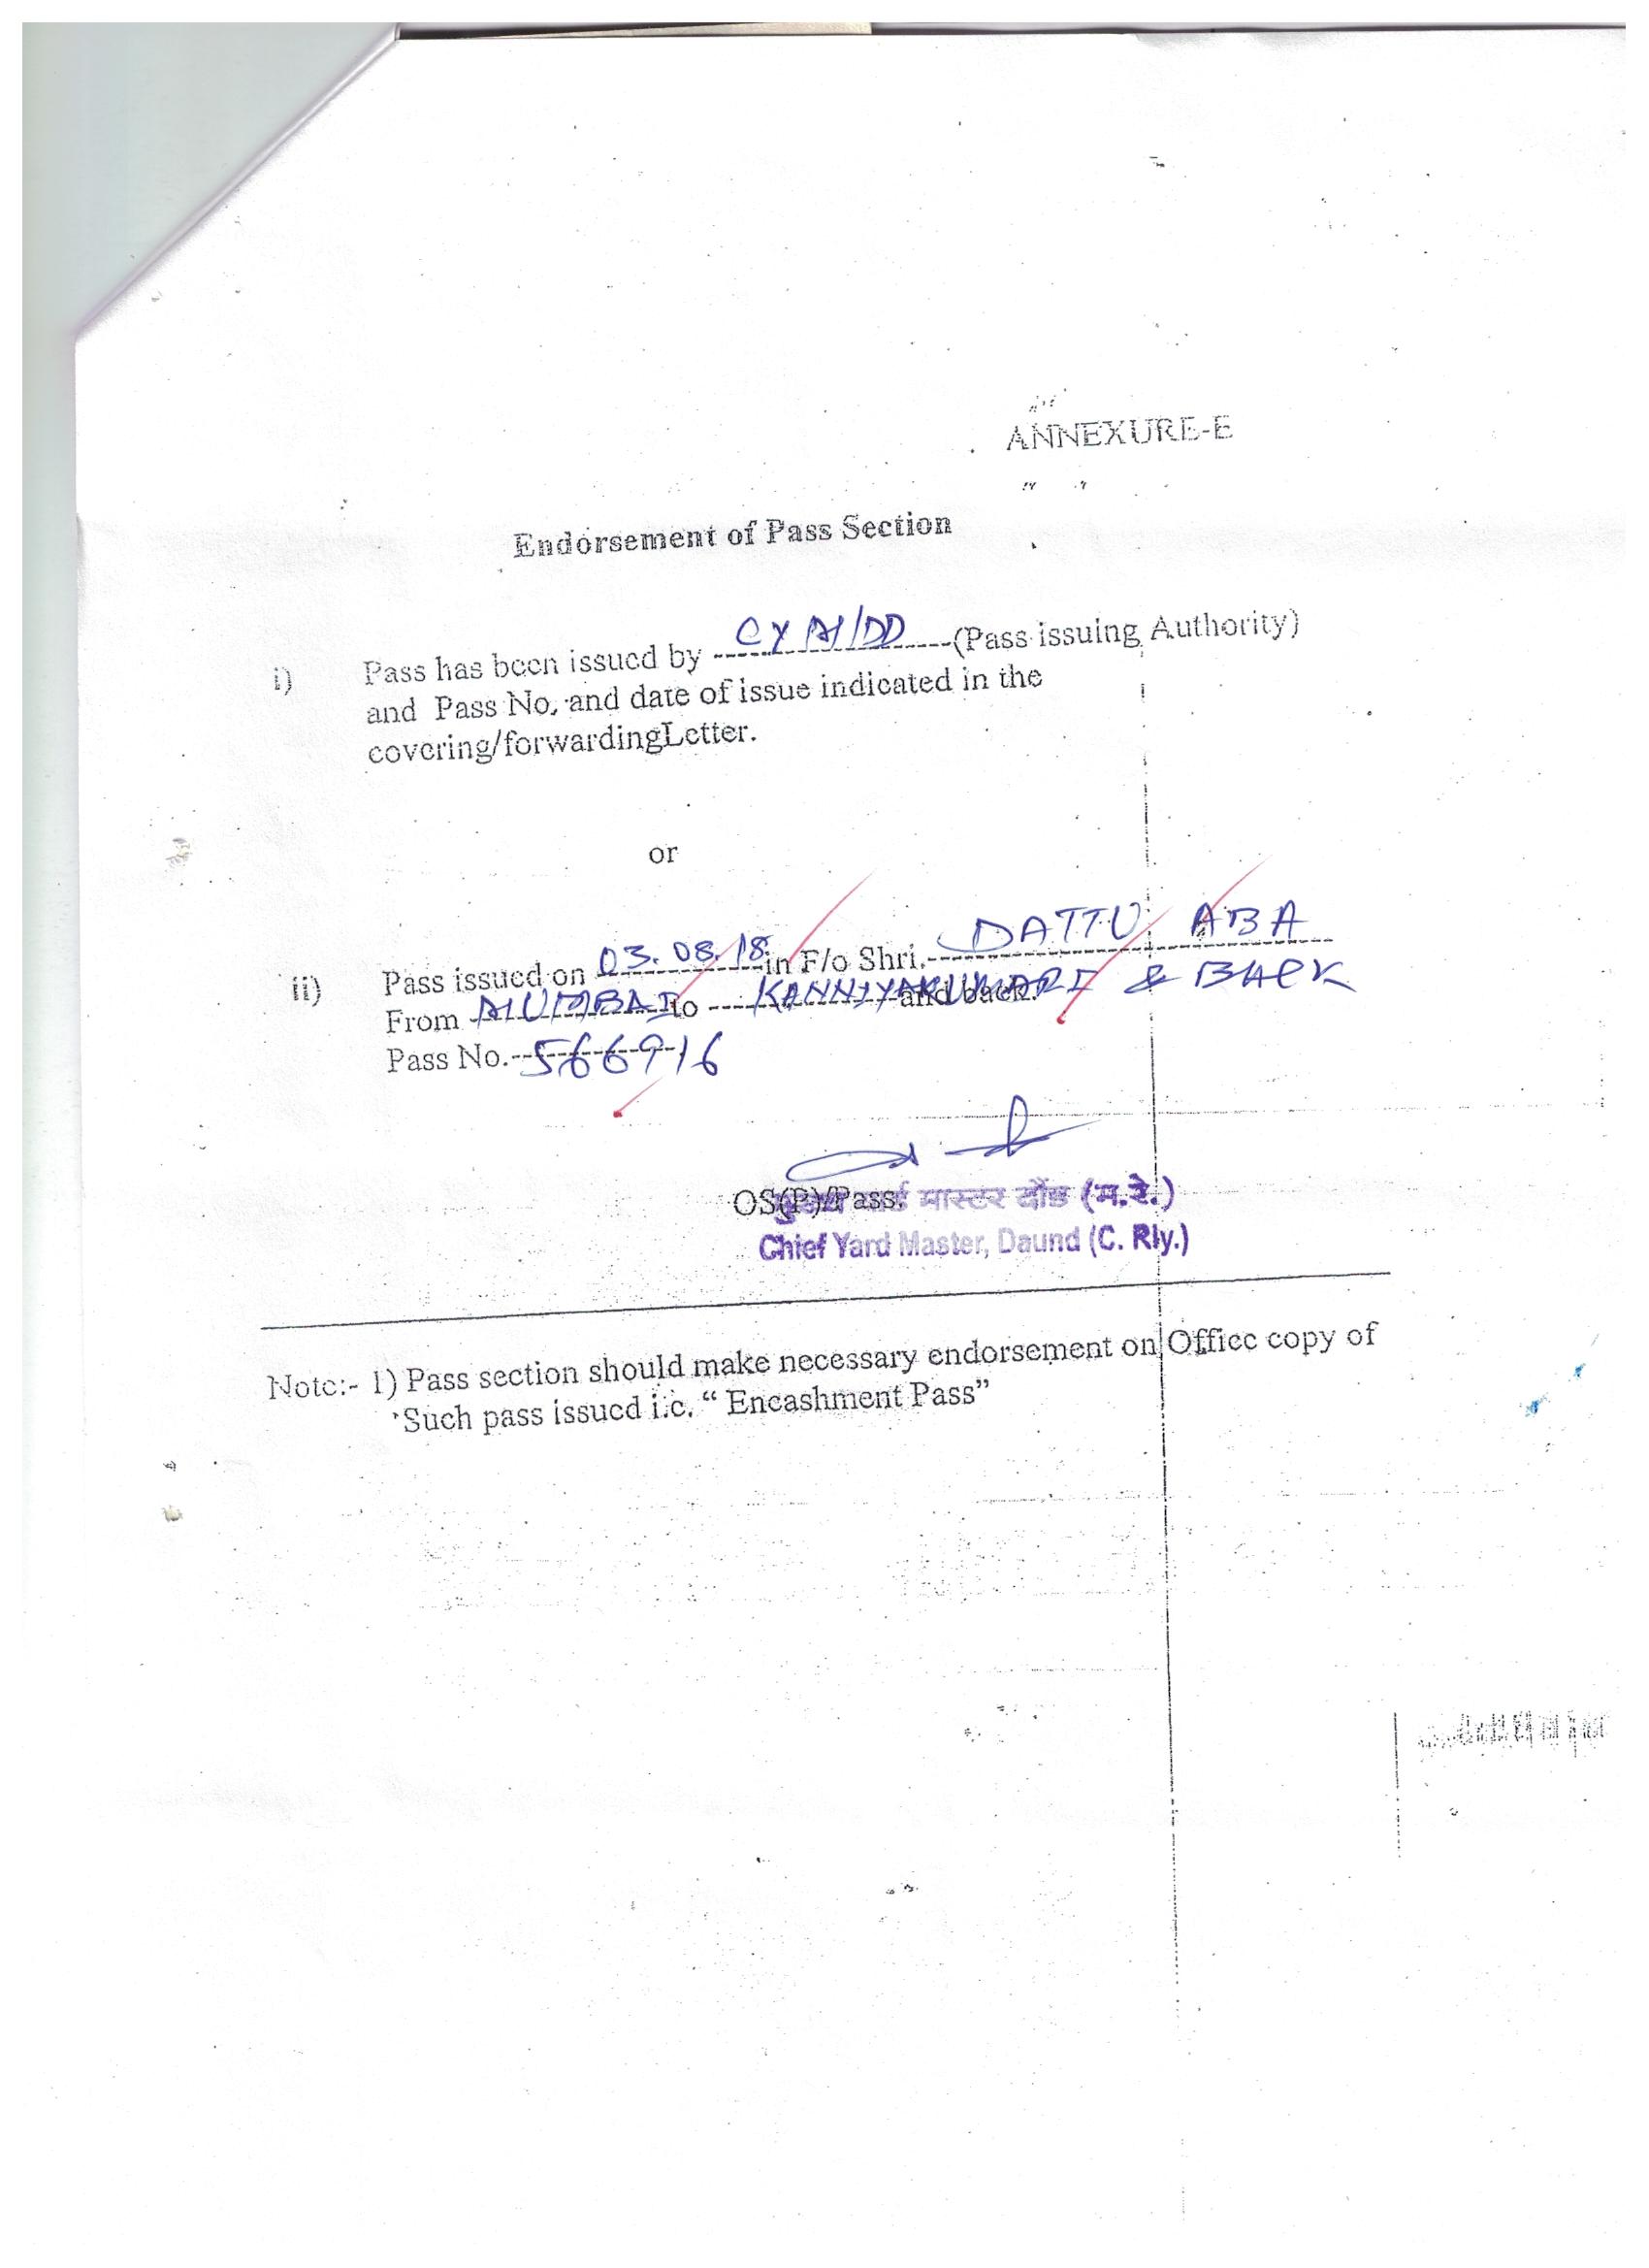 ANNEXURE-E
Endorsement of Pass Section
i) Pass has been issued by CYM/DD (Pass issuing Authority)
and Pass No. and date of issue indicated in the
covering/forwardingLetter.
or
ii) Pass issued on 03.08.18 in F/o Shri. DATTU ABA
From MUMBAI to KANNIYAKUMARI and back. & BACK
Pass No. 566916
OS(P)/Pass.
यार्ड मास्टर दौंड (म.रे.)
Chief Yard Master, Daund (C. Rly.)
Note:- 1) Pass section should make necessary endorsement on Office copy of
Such pass issued i.e. “ Encashment Pass”